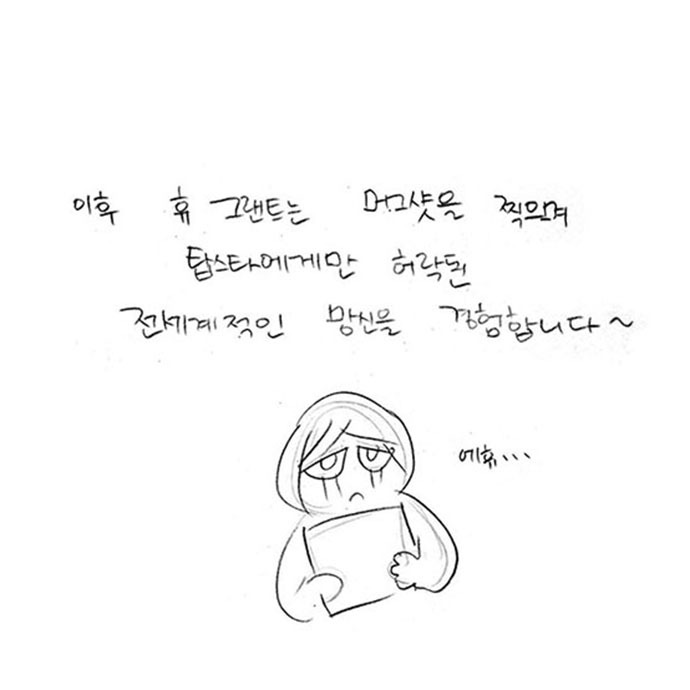 이후 휴 그랜트는 머그샷을 찍으며
탑스타에게만 허락된
전세계적인 망신을 경험합니다~
에휴...